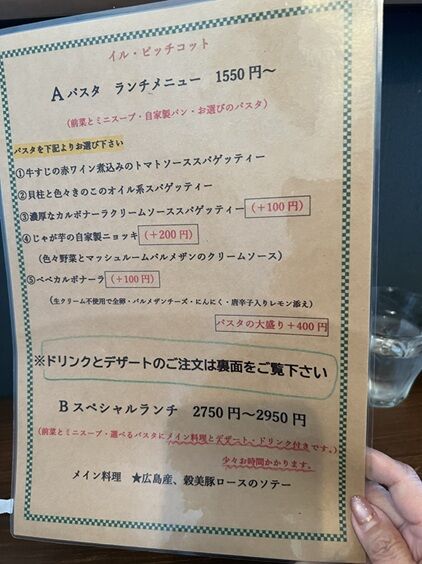 イル・ピッチコット
Aパスタ ランチメニュー 1550円～
(前菜とミニスープ・自家製パン・お選びのパスタ)
パスタを下記よりお選び下さい
①牛すじの赤ワイン煮込みのトマトソーススパゲッティー
②貝柱と色々きのこのオイル系スパゲッティー
③濃厚なカルボナーラクリームソーススパゲッティー(+100円)
④じゃが芋の自家製ニョッキ(+200円)
(色々野菜とマッシュルームパルメザンのクリームソース)
⑤ペペカルボナーラ(+100円)
(生クリーム不使用で全卵・パルメザンチーズ・にんにく・唐辛子入りレモン添え)
パスタの大盛り+400円
※ドリンクとデザートのご注文は裏面をご覧下さい
Bスペシャルランチ 2750円～2950円
(前菜とミニスープ・選べるパスタにメイン料理とデザート・ドリンク付きです。)
少々お時間かかります。
メイン料理 ★広島産、穀美豚ロースのソテー